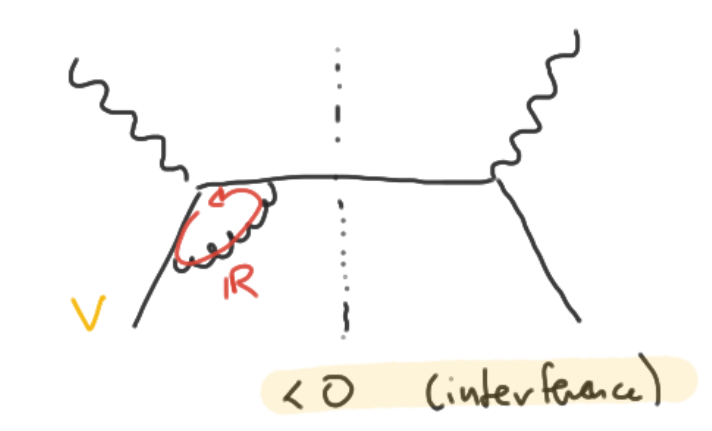 IR
V
< 0 (interference)